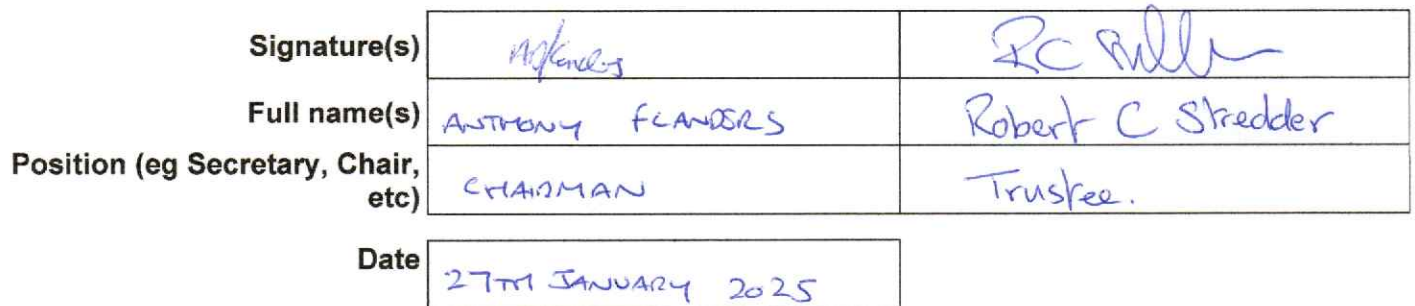 Signature(s) RC
Full name(s) ANTHONY FLANDERS Robert C Stredder
Position (eg Secretary, Chair,
etc) CHAIRMAN Trustee.
Date 27TH JANUARY 2025